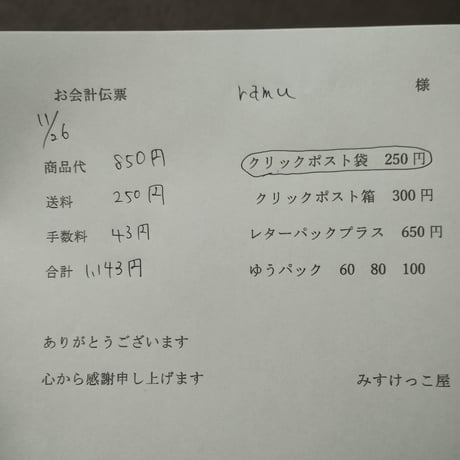 お会計伝票 ramu 様
11/26
商品代 850円
送料 250円
手数料 43円
合計 1,143円
クリックポスト袋 250円
クリックポスト箱 300円
レターパックプラス 650円
ゆうパック 60 80 100
ありがとうございます
心から感謝申し上げます
みすけっこ屋